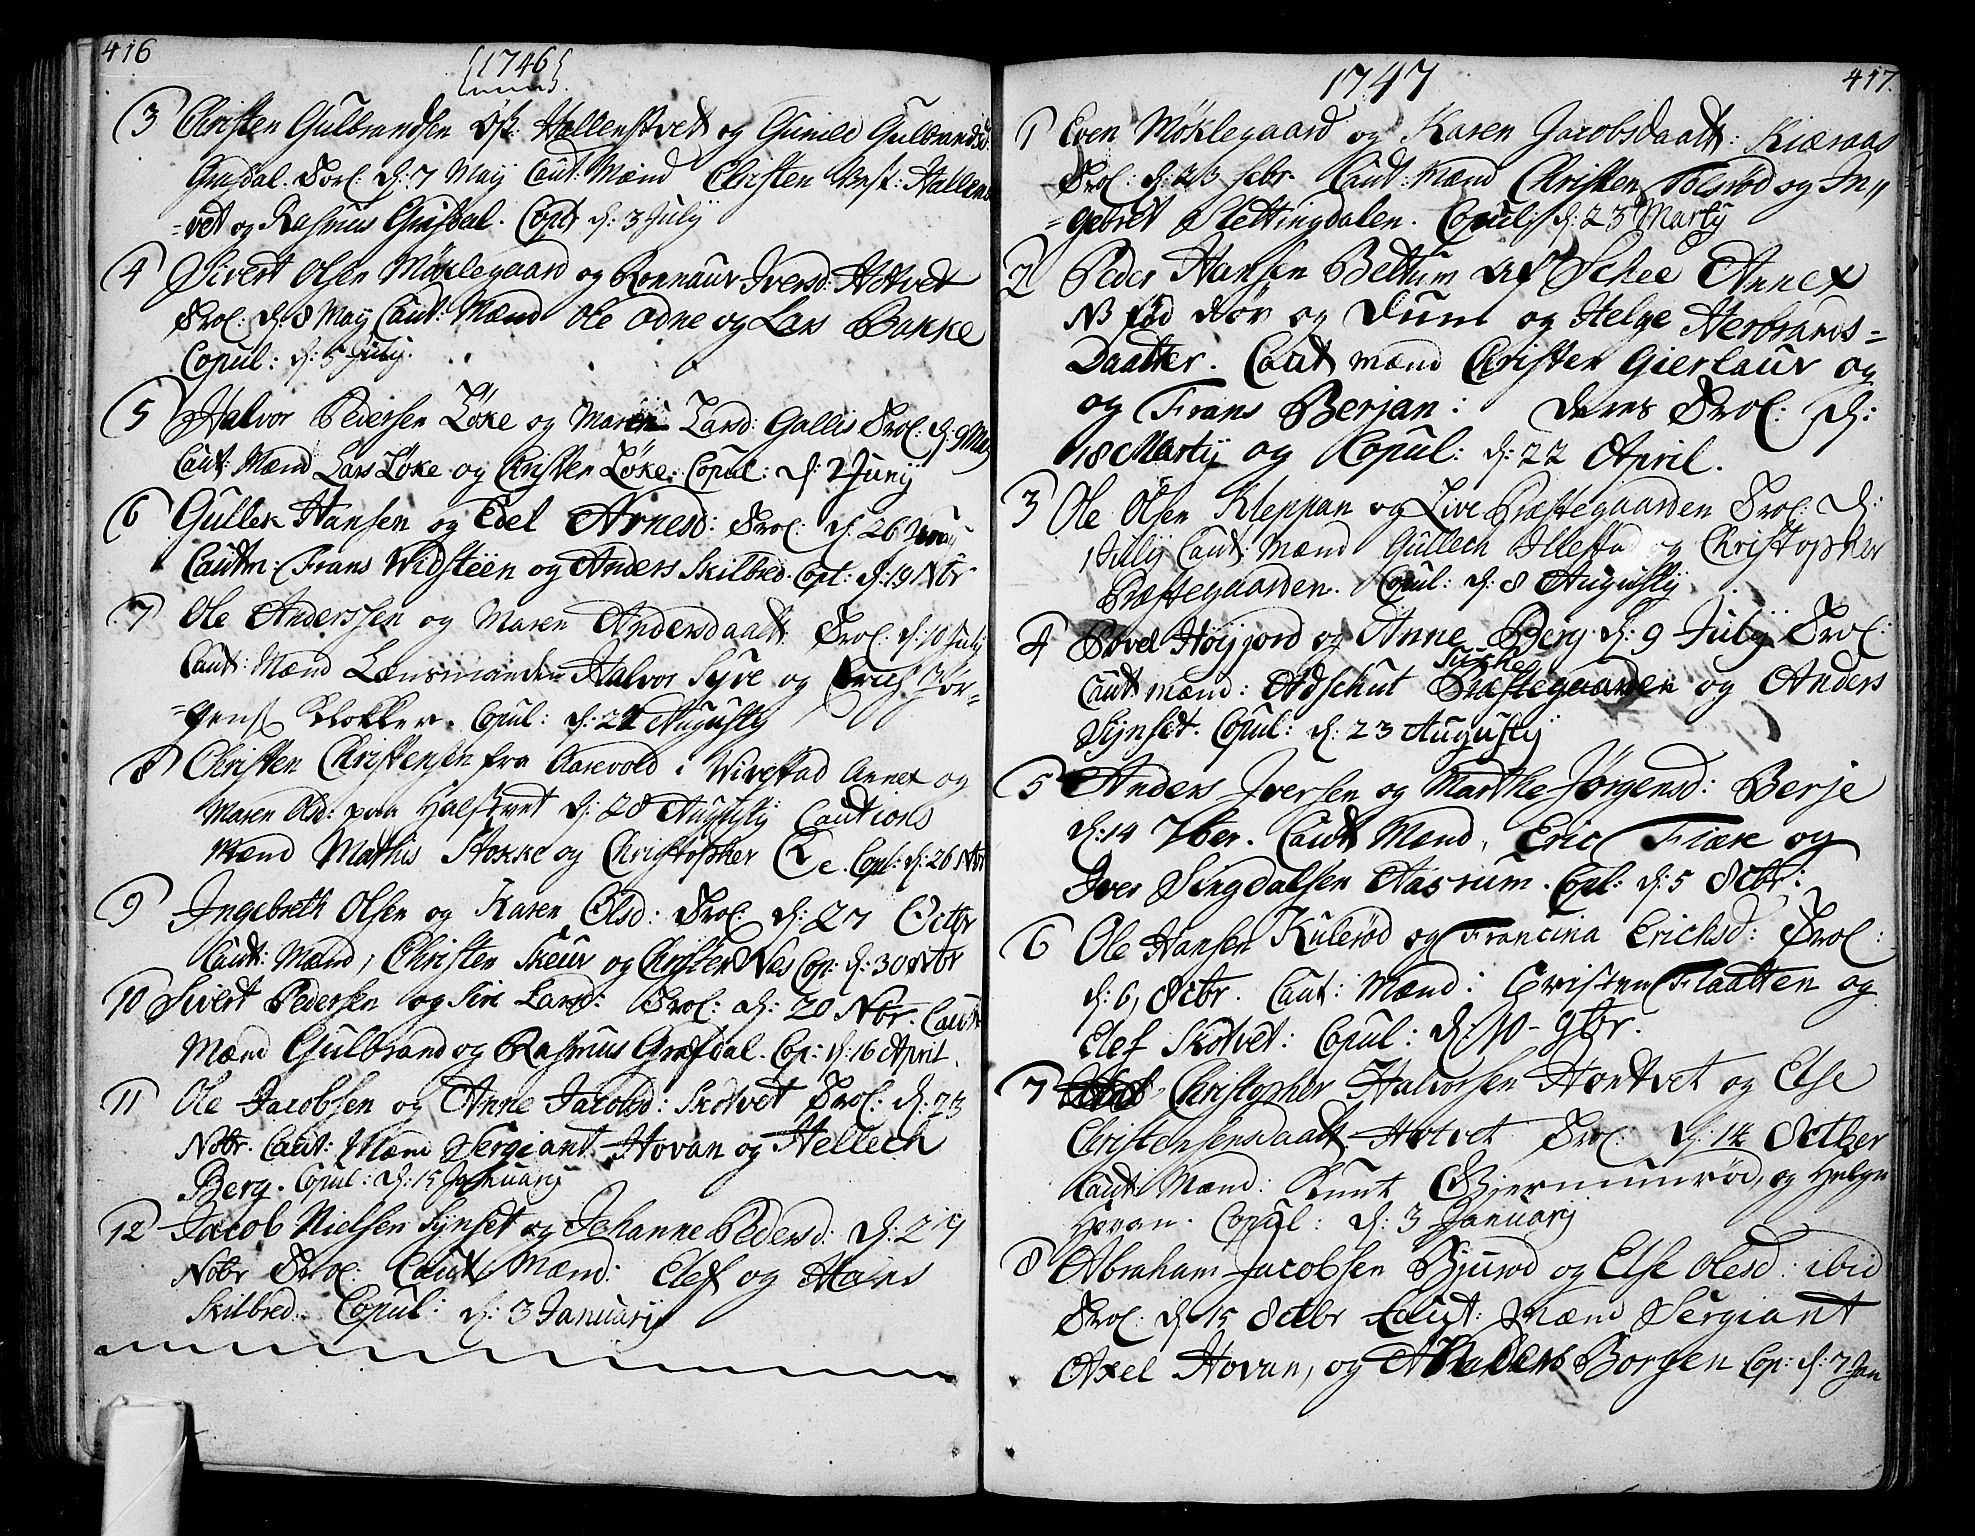 416
1746
3 Christen Gulbrandsen Øst: Hallenstvet og Gunild Gulbrandsd:
Græsdal. Trol: d: 7 Maij Caut: Mænd Christen Vest: Hallens
=vet og Rasmus Græsdal. Copl d: 3 Julij
4 Sivert Olsen Møklegaard og Ronnaur Iversd: Hotvet
Trol: d: 8 Maij Caut: Mænd Ole Odne og Lars Bakke
Copul: d: 5 Julij.
5 Halvor Pedersen Løke og Maren Larsd: Gallis Trol: d: 9 Maij
Caut: Mænd Lars Løke og Christen Løke: Copul: d: 2 Junij
6 Gullek Hansen og Edel Arnesd: Trol: d: 26
Cautm: Frans Widsteen og Anders Skilbred. Copt: d: 19 Nbr
7 Ole Anderssen og Maren Andersdaatt Trol: d: 10 Julij
Caut: Mænd Lensmanden Halvor Syre og Erich Jør-
=gens Klokker. Copul: d: 21 Augustij
8 Christen Christensen fra Aasevold i Wivestad Annex og
Maren Olsd: paa Halstvet d: 28 Augustij Cautions
Mænd Mathis Stokke og Christopher Ee. Copl: d: 26 Nbr
9 Ingebreth Olsen og Karen Olsd: Trol: d: 27 Octbr
Caut: Mænd, Christen Skeur og Christen Nes Cop: d: 30 Nbr
10 Sivert Pedersen og Siri Larsd: Trol: d: 20 Nbr. Caut:
Mænd Gulbrand og Rasmus Græsdal. Cop: d: 16 April.
11 Ole Jacobsen og Anne Jacobsd: Skotvet Trol: d: 23
Nobr. Caut: Mænd Sergiant Hovan og Hellech
Berg. Copul: d: 15 Januarij
12 Jacob Nielsen Synset og Johanne Pedersd: d: 29
Nobr Trol: Caut Mænd: Elef og Hans
Skilbred. Copul: d: 3 Januarij
417.
1747
1 Even Møklegaard og Karen Jacobsdaatt: Kiæraas
Trol: d: 23 febr. Caut: Mænd Christen Tolsrød og In,,
=gebret Slettingdalen. Copul: d: 23 Martij
2 Peder Hansen Beltum af Schee Annex
NB fød døv og Dum og Helge Herbrands=
Daatter. Caut mænd Christen Gierlaur og
og Frans Berjan: deres Trol: d:
18 Martij og Copul: d: 22 April.
3 Ole Olsen Kleppan og Live Præstegaarden Trol: d:
1 Julij Caut: Mænd Gullech Illestad og Christopher
Præstegaarden. Copul: d: 8 Augustij
4 Povel Høijjord og Anne Berg. d: 9 Julij Trol:
Caut mænd: Adschut Præstegaarden og Anders
Sijnset. Copul: d: 23 Augustij
5 Anders Iversen og Marthe Jørgensd: Berje
d: 14 7tber. Caut Mænd, Eric Fiære og
Iver Singdalsen Aasrum. Copl: d: 5 8tbr:
6 Ole Hansen Kulerød og Francina Erichsd: Trol:
d: 6, 8ctbr. Caut: Mænd: Christen Flaatten og
Elef Skotvet: Copul: d: 10 - 9tbr.
7 Christopher Halvorsen Hontvet og Else
Christensensdaatt Hotvet Trol: d: 14 8ctber
Caut: Mænd: Knut Gjermunrød, og Helge
Hovan. Copul: d: 3 Januarij
8 Abraham Jacobsen Bjurød og Else Olesd: ibid
Trol: d: 15 8ctbr Caut: Mænd Sergiant
Axel Hovan, og Anders Borgen Cop: d: 7 Jan